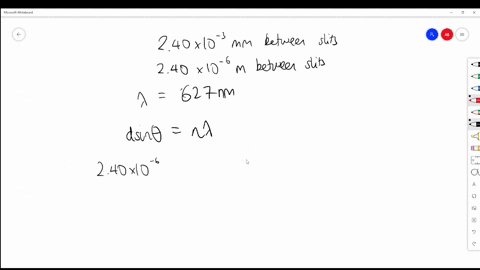 Microsoft Whiteboard
2.40 × 10⁻³ mm between slits
2.40 × 10⁻⁶ m between slits
λ = 627nm
dsinθ = nλ
2.40×10⁻⁶